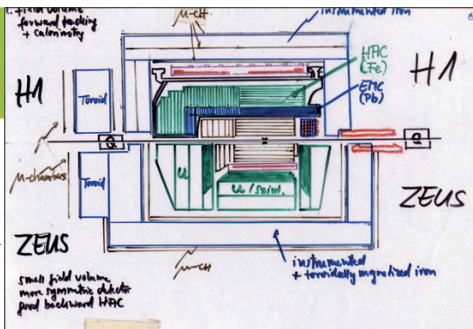 field volume
forward tracking
+ calorimetry
μ-CH
instrumented iron
HAC
(Fe)
EMC
(Pb)
H1
H1
Toroid
Q
Q
μ-chambers
Toroid
U
U/scint.
ZEUS
ZEUS
μ-CH
instrumented
+ toroidally magnetized iron
small field volume
more symmetric detector
good backward HAC